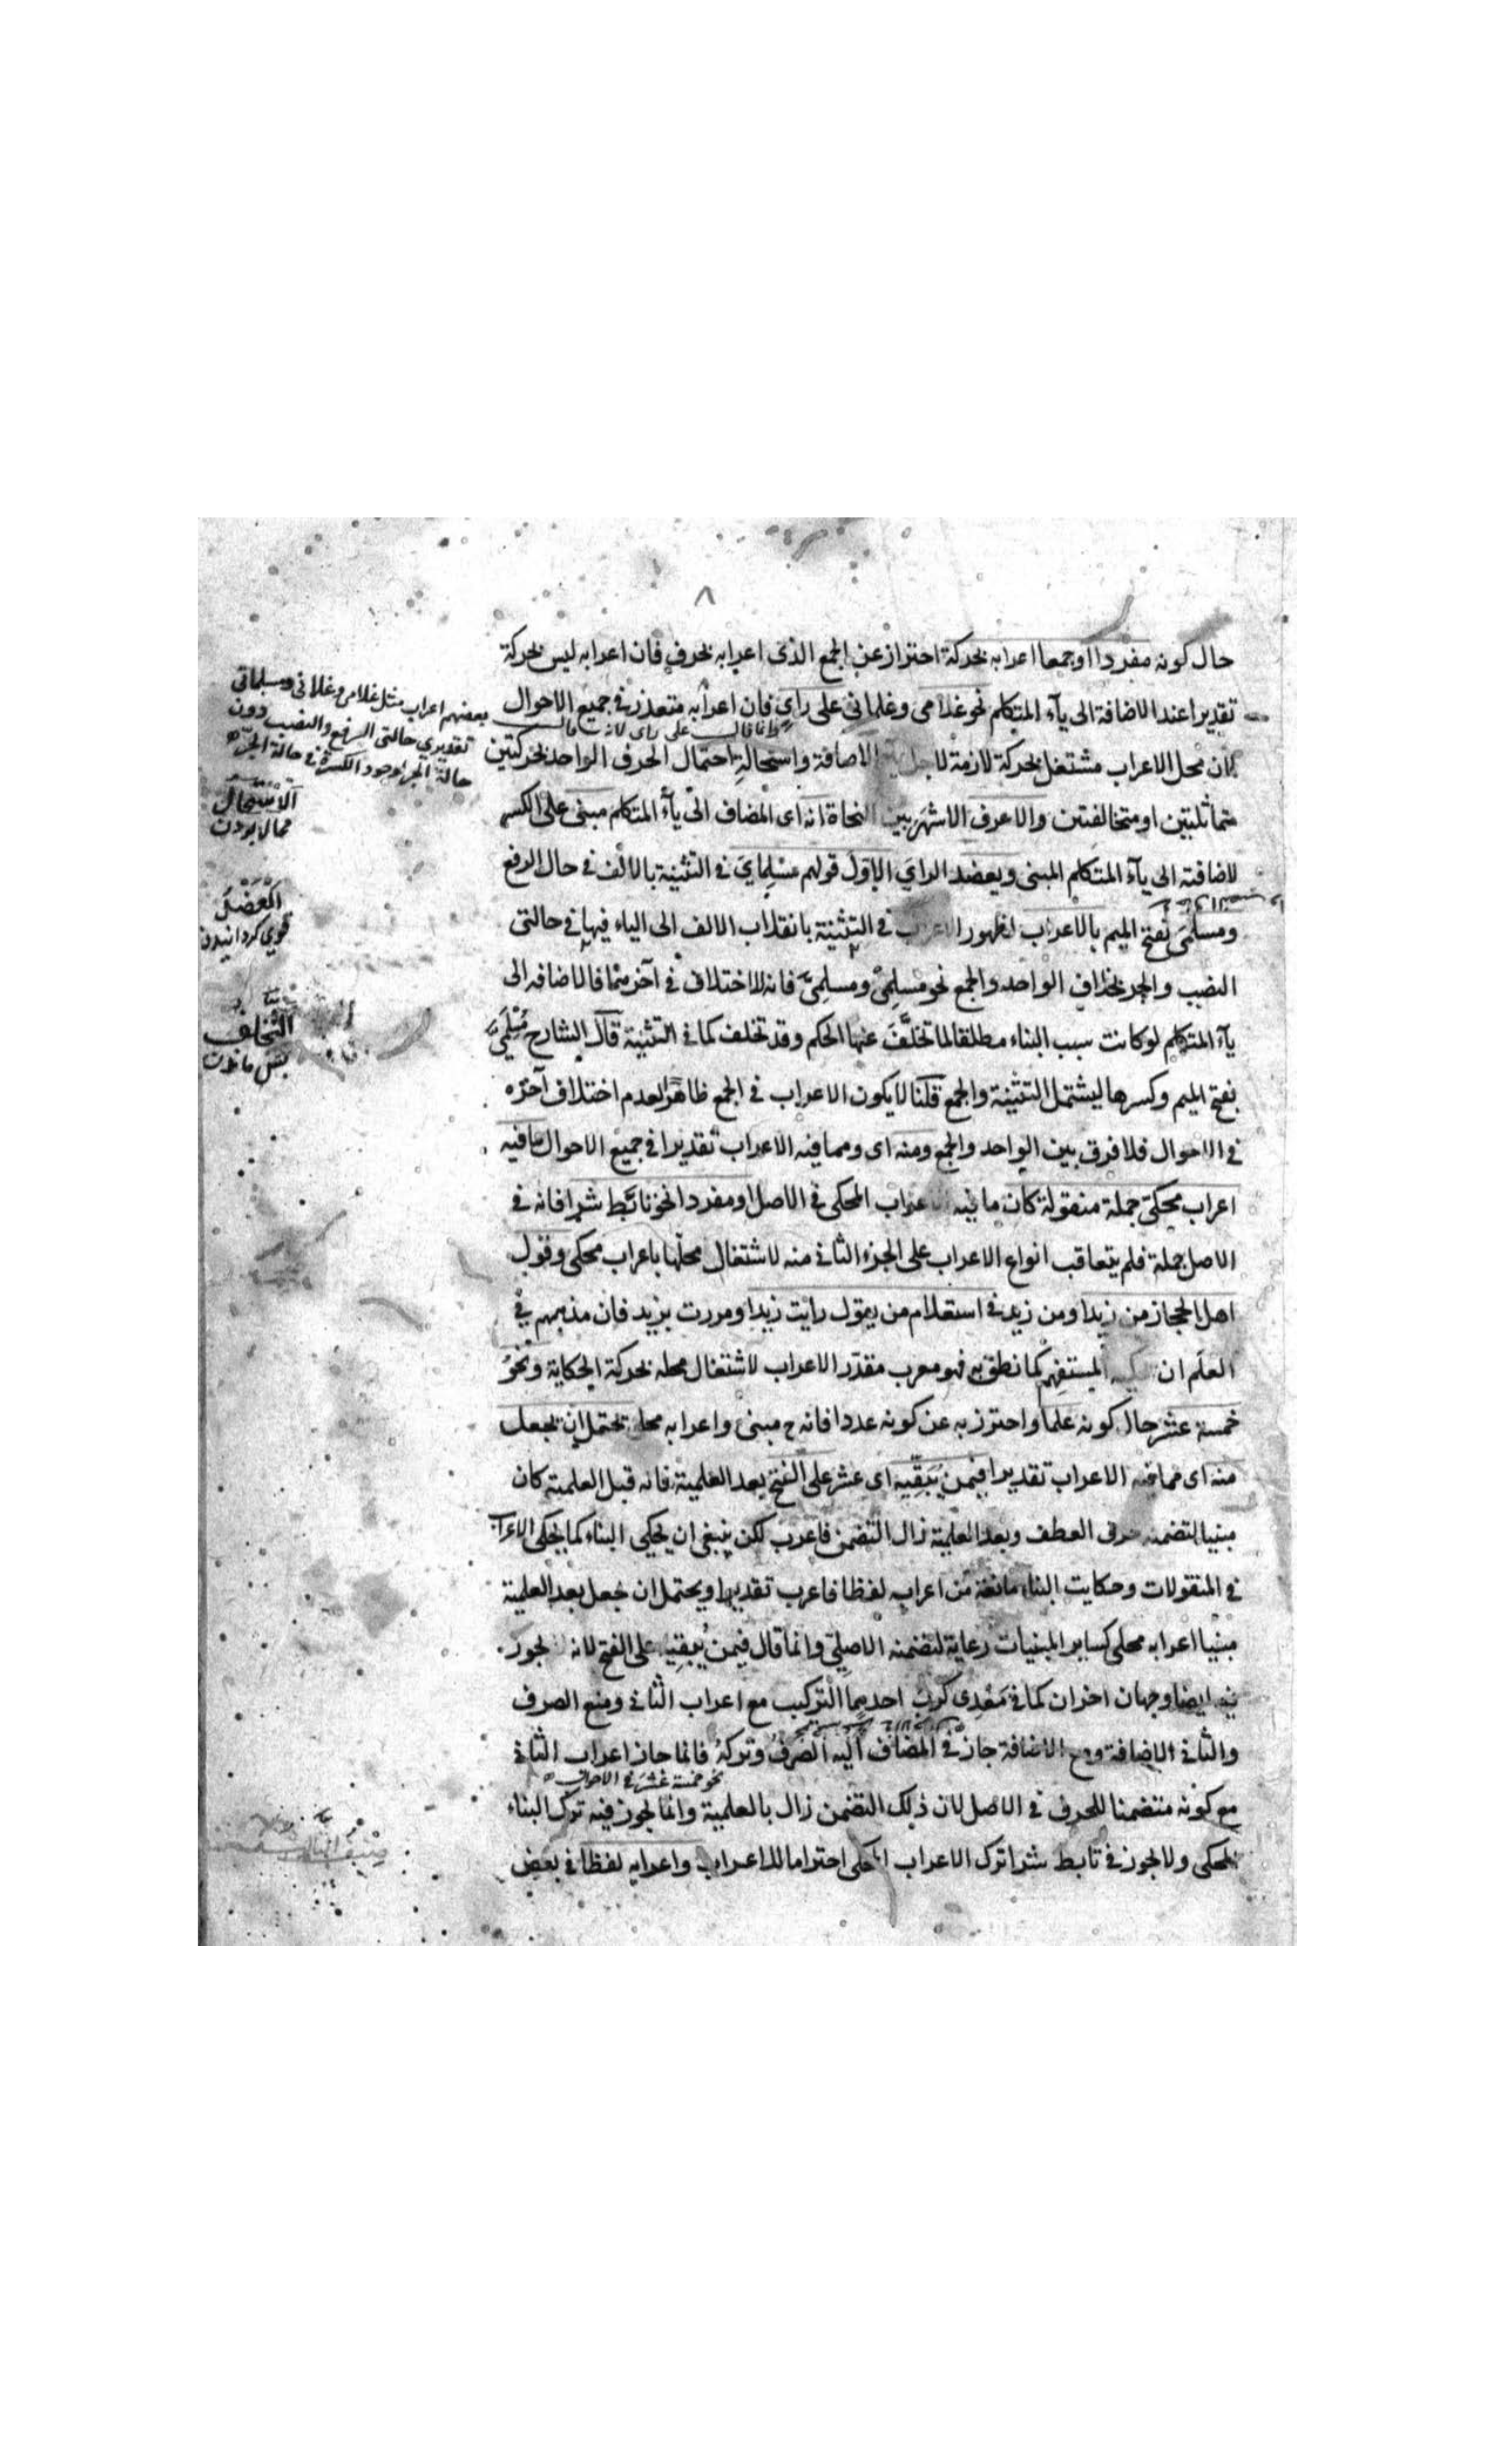 ٨
حال كونه مفردا او جمعا اعرابه بحركة احتراز عن الجمع الذى اعرابه بحرف فان اعرابه ليس بحركة
تقديرا عند الاضافة الى يآء المتكلم نحو غلامى وغلمانى على راي فان اعرابه متعذر فى جميع الاحوال
وانما قال على راى لان قال
لان محل الاعراب مشتغل بحركة لازمة لاجل الاضافة واستحالة احتمال الحرف الواحد بحركتين
متماثلتين او متخالفتين والاعرف الاشهر بين النحاة انه اى المضاف الى يآء المتكلم مبنى على الكسر
لاضافته الى يآء المتكلم المبنى ويعضد الراي الاوّل قولهم مسلماي فى التثنية بالالف فى حال الرفع
ومسلمَى بفتح الميم بالاعراب لظهور الاعراب فى التثنية بانقلاب الالف الى الياء فيها فى حالتى
النصب والجر بخلاف الواحد والجمع نحو مسلمِى ومسلمِيّ فانه لا اختلاف فى آخرهما فالاضافه الى
يآء المتكلم لو كانت سبب البناء مطلقا لما تخلّف عنها الحكم وقد تخلف كما فى التثنية قال الشارح مسلمَيّ
بفتح الميم وكسرها ليشتمل التثنية والجمع قلنا لا يكون الاعراب فى الجمع ظاهرا لعدم اختلاف آخره
فى الاحوال فلا فرق بين الواحد والجمع ومنه اى ومما فيه الاعراب تقديرا فى جميع الاحوال ما فيه
اعراب محكىّ جملة منقولة كان ما فيه اعراب المحكى فى الاصل او مفردا نحو تابّط شرا فانه فى
الاصل جملة فلم يتعاقب انواع الاعراب على الجزء الثانى منه لاشتغال محلها باعراب محكى وقول
اهل الحجاز من زيدا ومن زيد فى استعلام من يقول رايت زيدا ومررت بزيد فان مذهبهم فى
العلم ان المستفهم كما نطق به فهو معرب مقدّر الاعراب لاشتغال محله بحركة الحكاية ونحو
خمسة عشر حال كونه علما واحترز به عن كونه عددا فانه ح مبنى واعرابه محلى يحتمل ان يجعل
منه اى مما فيه الاعراب تقديرا فيمن يُبَقِّيه اى عشر على الفتح بعد العلمية فانه قبل العلمية كان
مبنيا لتضمنه حرف العطف وبعد العلمية زال التضمن فاعرب لكن ينبغى ان يحكى البناء كما يحكى الاعراب
فى المنقولات وحكايت البناء مانعة من اعرابه لفظا فاعرب تقديرا ويحتمل ان يجعل بعد العلمية
مبنيا اعرابه محلى كسابر المبنيات رعاية لتضمنه الاصلي وانما قال فيمن يبقيه على الفتح لانه يجوز
فيه ايضا وجهان اخران كما فى مَعْدِى كرب احدهما التركيب مع اعراب الثانى ومنع الصرف
والثانى الاضافة ومع الاضافة جاز فى المضاف اليه الصرفُ وتركهُ فانما جاز اعراب الثانى
نحو خمسة عشر فى الاحوال
مع كونه متضمنا للحرف فى الاصل لان ذلك التضمن زال بالعلمية وانما يجوز فيه ترك البناء
المحكى ولا يجوز فى تابط شرا ترك الاعراب المحكى احتراما للاعراب واعرابه لفظا فى بعض
بعضهم اعراب مثل غلامى وغلمانى ومسلماتى
تقديري حالتى الرفع والنصب دون
حالة الجر لوجود الكسرة فى حالة الجر
الاستحال
محالا بودن
العضد
قوي كردانيدن
التخلف
بس ماندن